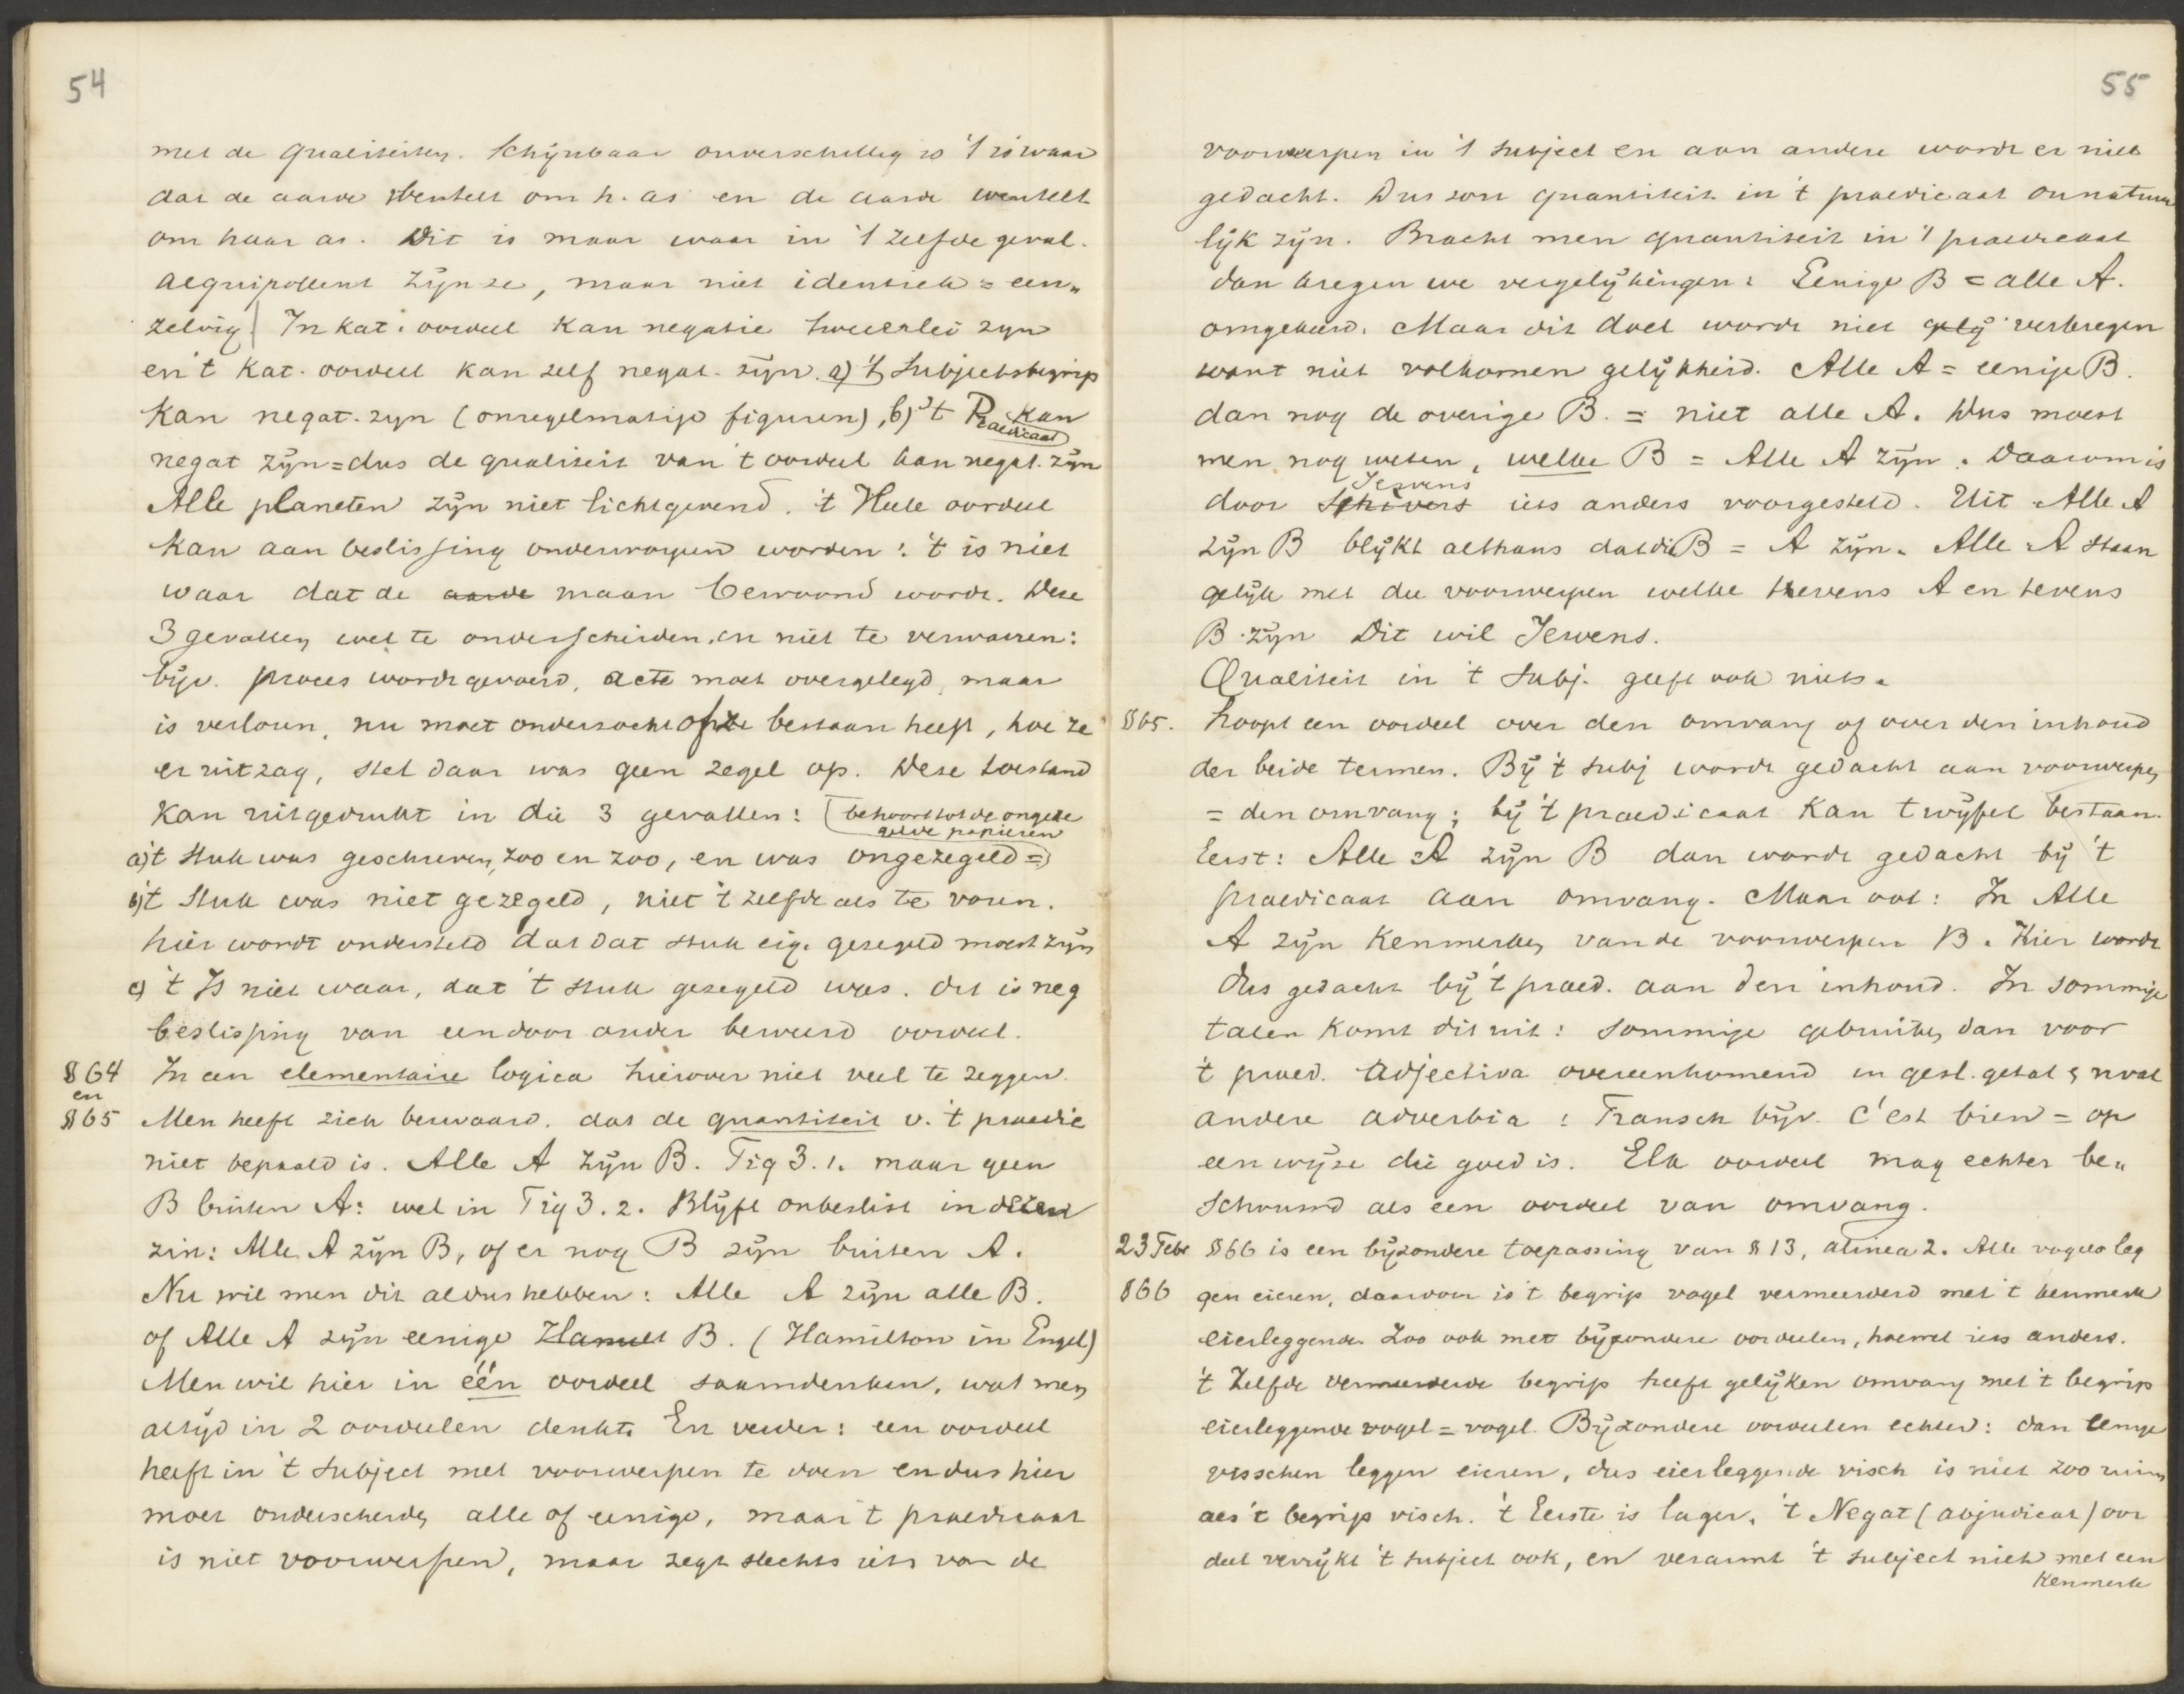 54
met de qualiteiten. Schijnbaar onverschillig is 't is waar
dat de aarde wentelt om h. as en de aarde wentelt
om haar as. Dit is maar waar in 't zelfde geval.
aequipollent zijn ze, maar niet identiek = een„
zelvig | In kat. oordeel kan negatie tweeërlei zyn
en 't kat. oordeel kan zelf negat. zijn. a) 't Subjectsbegrip
kan negat. zyn (onregelmatige figuren), b) 't Praedicaat kan
negat zijn = dus de qualiteit van 't oordeel kan negat. zijn
Alle planeten zijn niet lichtgevend. 't Heele oordeel
kan aan beslissing onderworpen worden: 't is niet
waar dat de aarde maan bewoond wordt. Deze
3 gevallen wel te onderscheiden en niet te verwarren:
bijv. proces wordt gevoerd, acte moet overgelegd, maar
is verloren, nu moet onderzocht of ze bestaan heeft, hoe ze
er uitzag, stel daar was geen zegel op. Deze toestand
kan uitgedrukt in die 3 gevallen: (behoort tot de ongeze
gelde papieren
a) 't Stuk was geschreven, zoo en zoo, en was ongezegeld =)
b) 't Stuk was niet gezegeld, niet 't zelfde als te voren.
hier wordt ondersteld dat dat stuk eig. gezegeld moest zijn
c) 't Is niet waar, dat 't stuk gezegeld was. dit is neg
beslissing van een door ander beweerd oordeel.
§ 64 In een elementaire logica hierover niet veel te zeggen.
en
§ 65 Men heeft zich bezwaard. dat de quantiteit v. 't praedic
niet bepaald is. Alle A zijn B. Fig 3.1. maar geen
B buiten A: wel in Fig 3.2. Blijft onbeslist in dezen
zin: Alle A zijn B, of er nog B zijn buiten A.
Nu wil men dit aldus hebben: Alle A zijn alle B.
of Alle A zijn eenige B. (Hamilton in Engel)
Men wil hier in één oordeel saamdenken, wat men
altijd in 2 oordeelen denkt. En verder: een oordeel
heeft in 't subject met voorwerpen te doen en dus hier
moet onderscheiden alle of eenige, maar 't praedicaat
is niet voorwerpen, maar zegt slechts iets van de
55
voorwerpen in 't subject en aan andere wordt er niet
gedacht. Dus zou quantiteit in 't praedicaat onnatuur
lijk zijn. Bracht men quantiteit in 't praedicaat
dan kregen we vergelijkingen: Eenige B = alle A.
omgekeerd. Maar dit doel wordt niet gelij verkregen
want niet volkomen gelijkheid. Alle A = eenige B.
dan nog de overige B. = niet alle A. Dus moest
men nog weten, welke B = Alle A zijn. Daarom is
Jevons
door iets anders voorgesteld. Uit Alle A
zijn B blijkt althans dat die B = A zijn. Alle A staan
gelijk met die voorwerpen welke tevens A en tevens
B zijn Dit wil Jevens.
Qualiteit in 't Subj. geeft ook niets.
§ 65. Loopt een oordeel over den omvang of over den inhoud
der beide termen. Bij 't subj wordt gedacht aan voorwerpen
= den omvang; bij 't praedicaat kan twijfel bestaan.
Eerst: Alle A zijn B dan wordt gedacht bij 't
praedicaat aan omvang. Maar ook: In Alle
A zijn kenmerken van de voorwerpen B. Hier wordt
dus gedacht bij 't praed. aan den inhoud. In sommige
talen komt dit uit: sommige gebruiken dan voor
't praed. adjectiva overeenkomend in gesl. getal & nval
andere adverbia: Fransch bijv. c'est bien = op
een wijze die goed is. Elk oordeel mag echter be„
schouwd als een oordeel van omvang.
23 Febr § 66 is een bijzondere toepassing van § 13, alinea 2. Alle vogels leg
§ 66 gen eieren, daardoor is 't begrip vogel vermeerderd met 't kenmerk
eierleggende. Zoo ook met bijzondere oordeelen, hoewel iets anders.
't Zelfde vermeerderde begrip heeft gelijken omvang met 't begrip
eierleggende vogel = vogel. Bijzondere oordeelen echter: dan eenige
visschen leggen eieren, dus eierleggende visch is niet zoo ruim
als 't begrip visch. 't Eerste is lager. 't Negat (abjudicat) oor
deel verrijkt 't subject ook, en verarmt 't subject niet met een
kenmerk